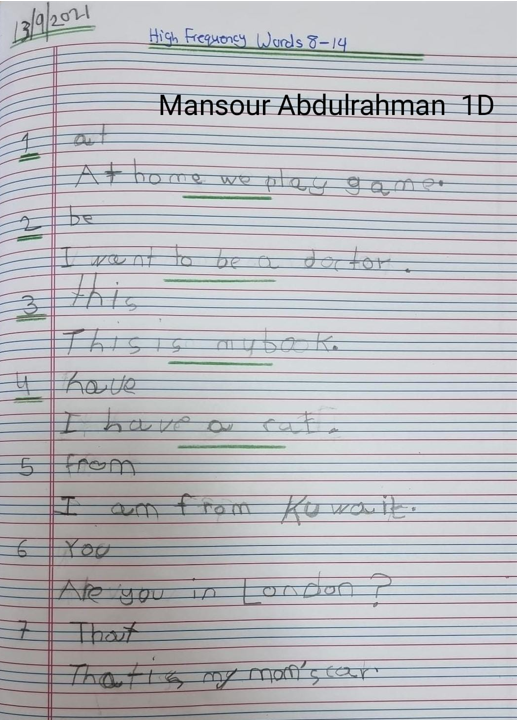 13/9/2021
High Frequency Words 8-14
Mansour Abdulrahman 1D
1 at
At home we play game.
2 be
I want to be a doctor.
3 this
This is my book.
4 have
I have a rat.
5 from
I am from Kuwait.
6 You
Are you in London?
7 That
That is my mom's car.